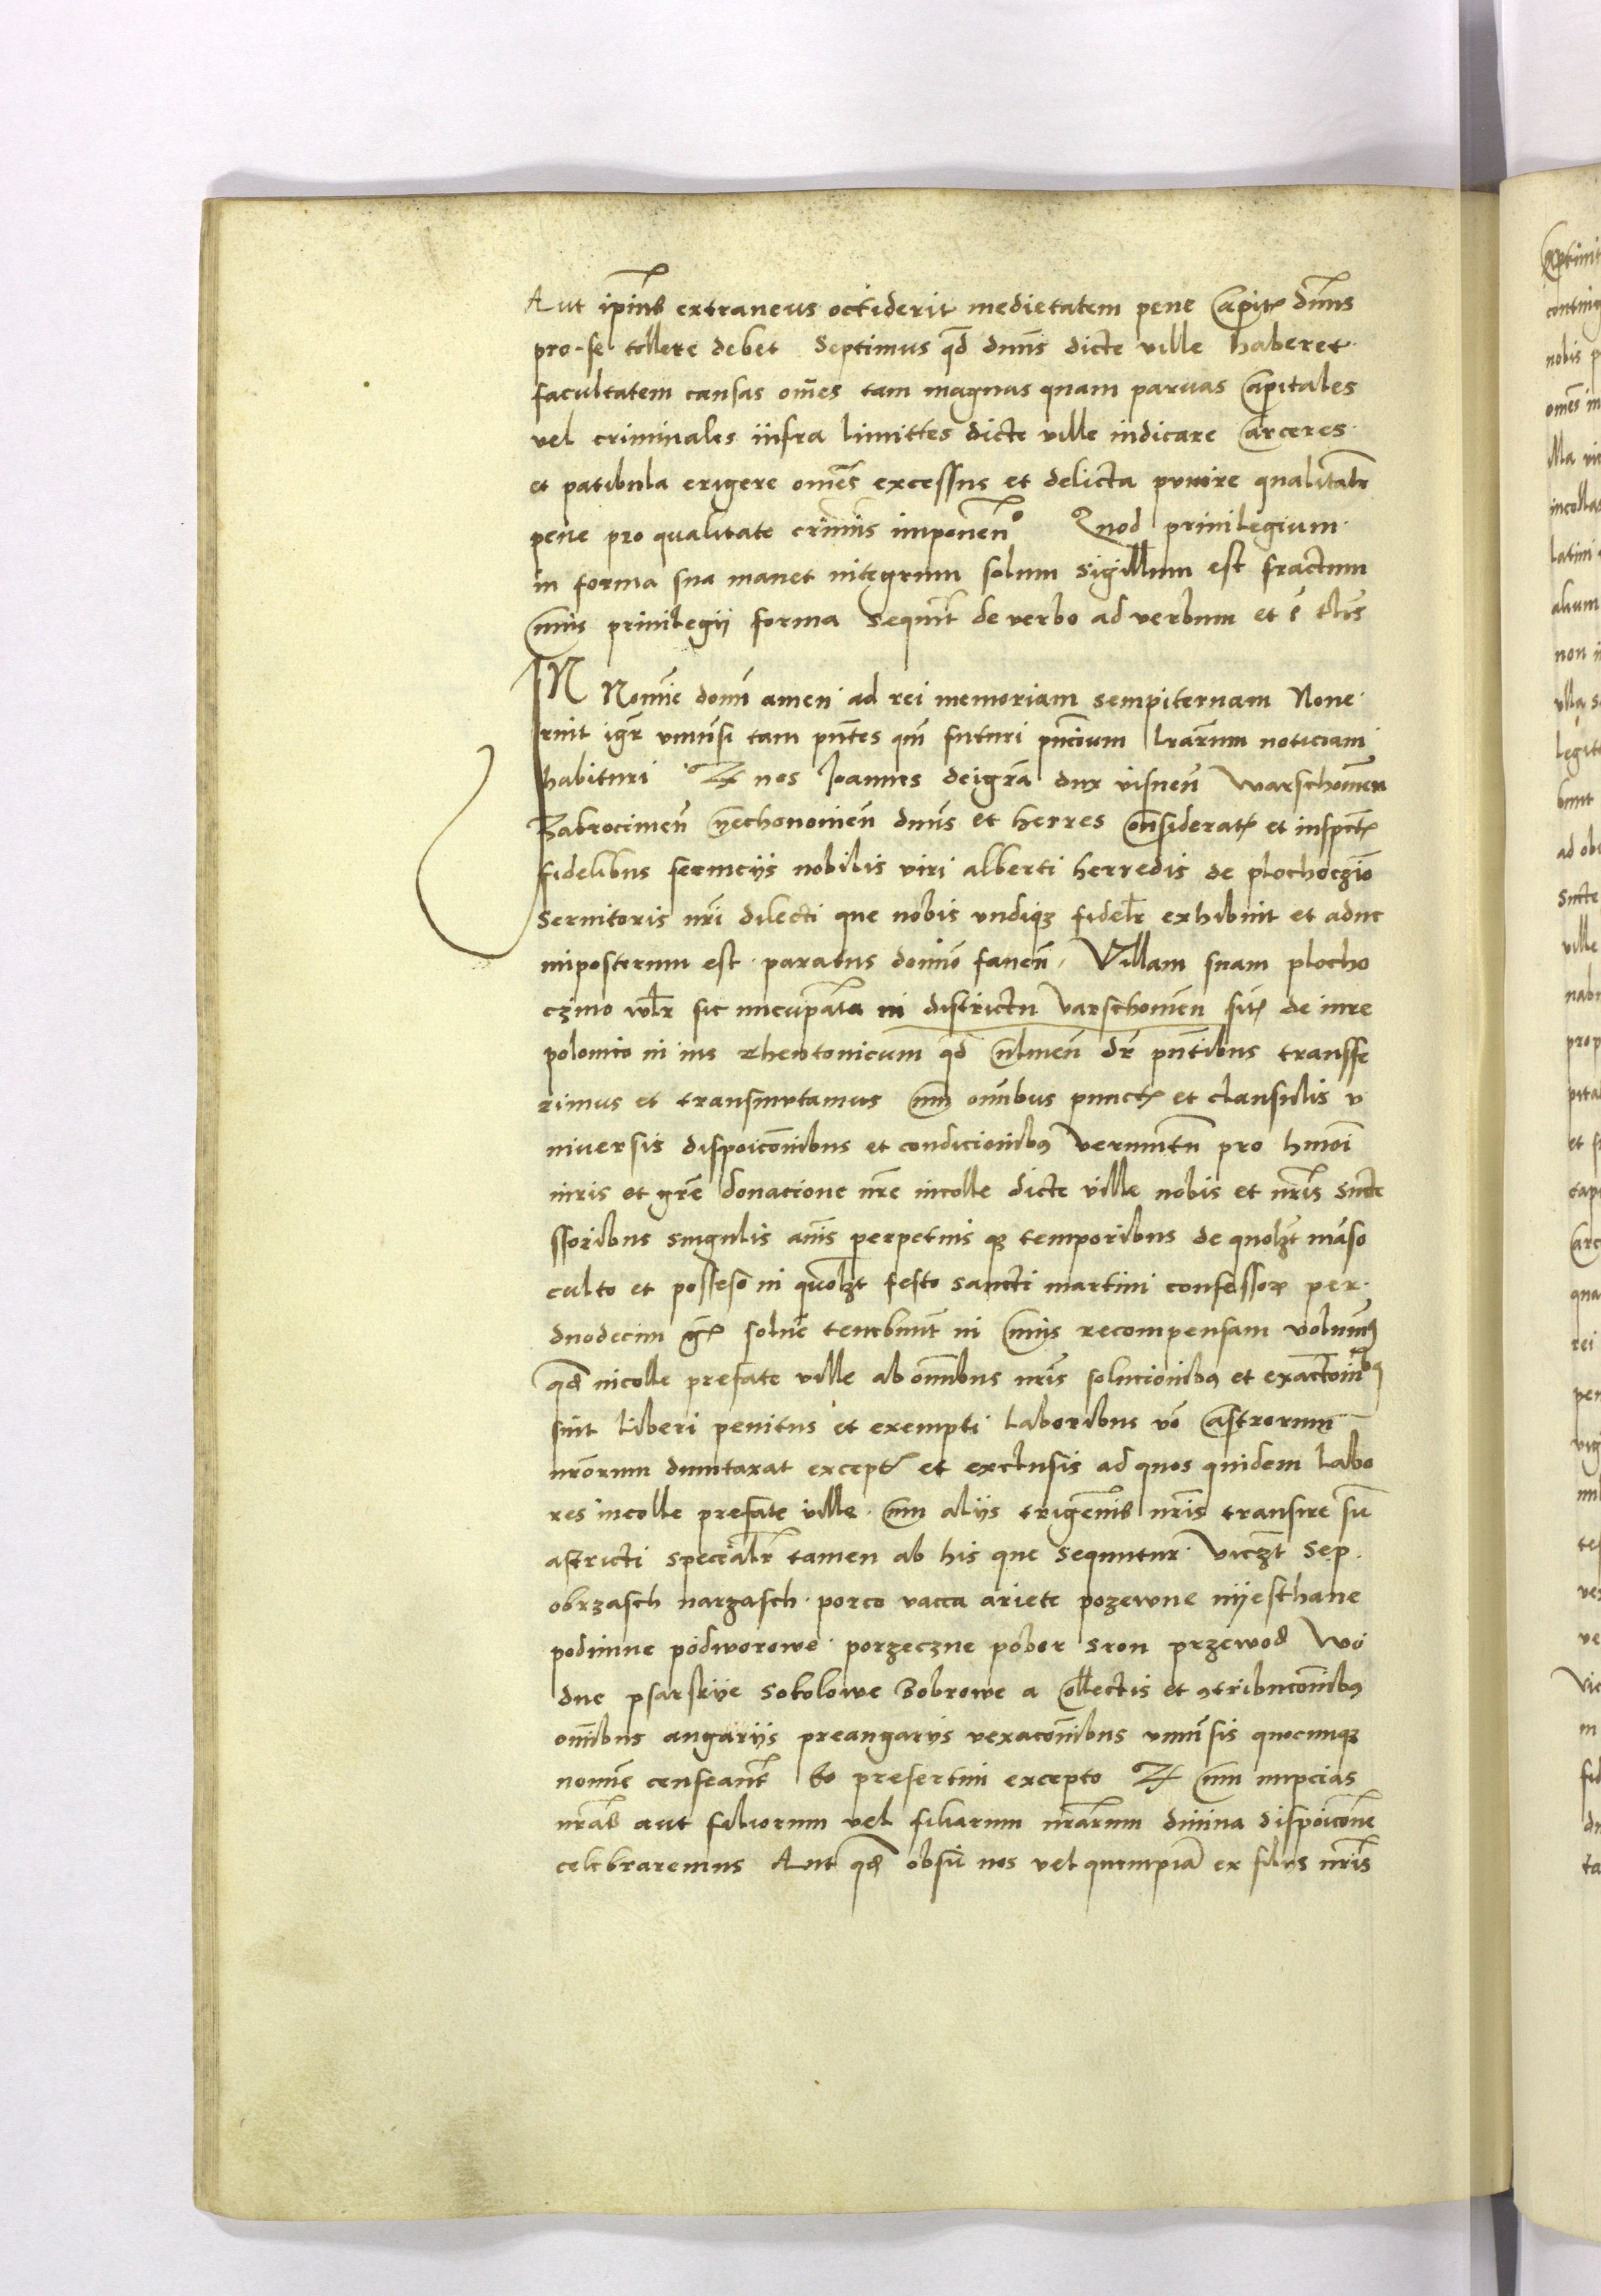 Aut ipius extraneus occiderit medietatem pene capit dnus
pro se tollere debet Septimus qd dnus dicte ville haberet
facultatem causas omes tam magnas quam parvas capitales
vel criminales infra limittes dicte ville iudicare carceres
et patibula erigere omes excessus et delicta punire qualitate
pene pro qualitate criminis imponen Quod privilegium
in forma sua manet integrum solum sigillum est fractum
cuius privilegii forma sequit de verbo ad verbum et est tlis
IN Nomie domi amen ad rei memoriam sempiternam Nove
rint igr univsi tam pntes qm futuri pncium lrarum noticiam
habituri Qz nos Joannes dei gra dux visnen Warschovien
Zakrocimen Cyechonovien dnus et herres considerat et inspect
fidelibus serviciis nobilis viri alberti herredis de plochoczino
Servitoris nri dilecti que nobis undiqz fidelr exhibuit et aduc
imposterum est paratus domino faven Villam suam plocho
czino wlr sic nuncupata in districtu varschovien sit de iure
polonico in ius theutonicum qd culmen dr pntibus transfe
rimus et transmutamus cum omibus punct et clausulis u
niversis dispoicionibus et condicionibus verumtn pro hmoi
iuris et gre donacione nre incolle dicte ville nobis et nris succe
ssoribus singulis anis perpetuis qz temporibus de quolzt manso
culto et possesso in quolzt festo sancti martini confessor per
duodecim gr solve tenebunt in cuius recompensam volumus
qd incolle prefate ville ab omibus nris solucionibus et exactionibus
sint liberi penitus et exempti laboribus vo castrorum
nrorum dumtaxat except et exclusis ad quos quidem labo
res incolle prefate ville cum aliis terrigenis nris transire sut
astricti specialr tamen ab his que sequntur viczt Sep
obrzasch narzasch porco vacca ariete pozewne nyesthane
podimne podworowe porzeczne pobor sron przewod wo
dne psarskiye Sokolowe Bobrowe a collectis et contribucionibus
omibus angariis preangariis vexacionibus univsis quocunqz
nomie censeant Eo presertim excepto Qz cum nupcias
nras aut filiorum vel filiarum nrarum divina dispoicione
celebraremus Aut qd absit nos vel quempia ex filiis nris